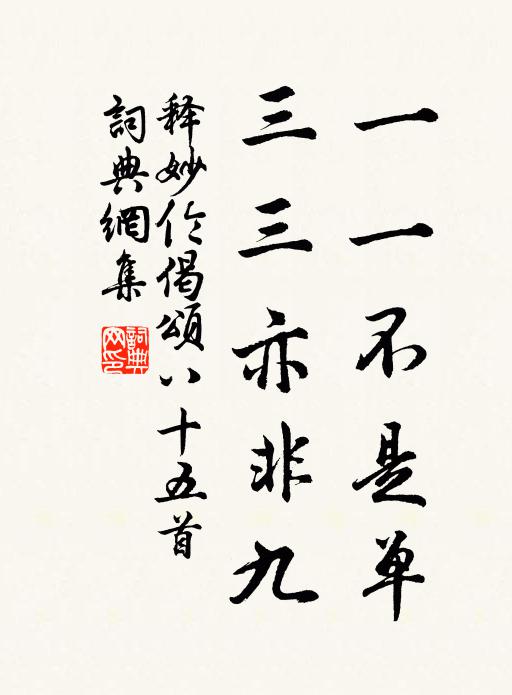 一一不是单
三三亦非九
释妙伦偈颂八十五首
詞典網集
詞典网印